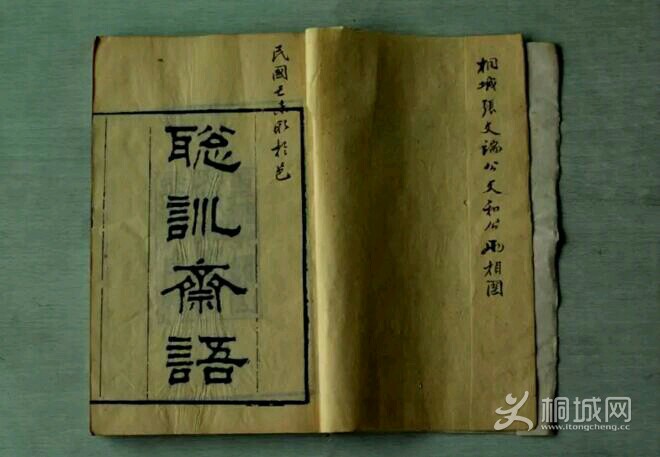 桐城張文端公文和公兩相國
民國己未於邑
聰訓齋語
桐城网
www.itongcheng.cc